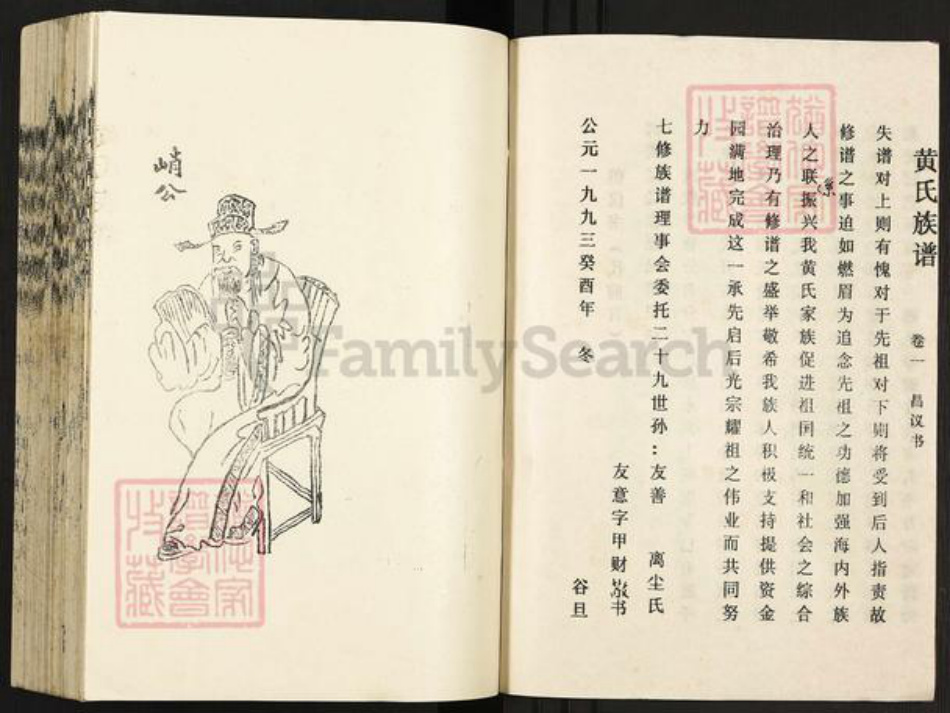 黄氏族谱
卷一 昌议书
失谱对上则有愧对于先祖对下则将受到后人指责故
修谱之事迫如燃眉为追念先祖之功德加强海内外族
人之联(系)振兴我黄氏家族促进祖国统一和社会之综合
治理乃有修谱之盛举敬希我族人积极支持提供资金
园满地完成这一承先启后光宗耀祖之伟业而共同努
力
七修族谱理事会委托二十九世孙：友善 离尘氏
友意字甲财敬书
公元一九九三癸酉年 冬 谷旦
峭公
FamilySearch